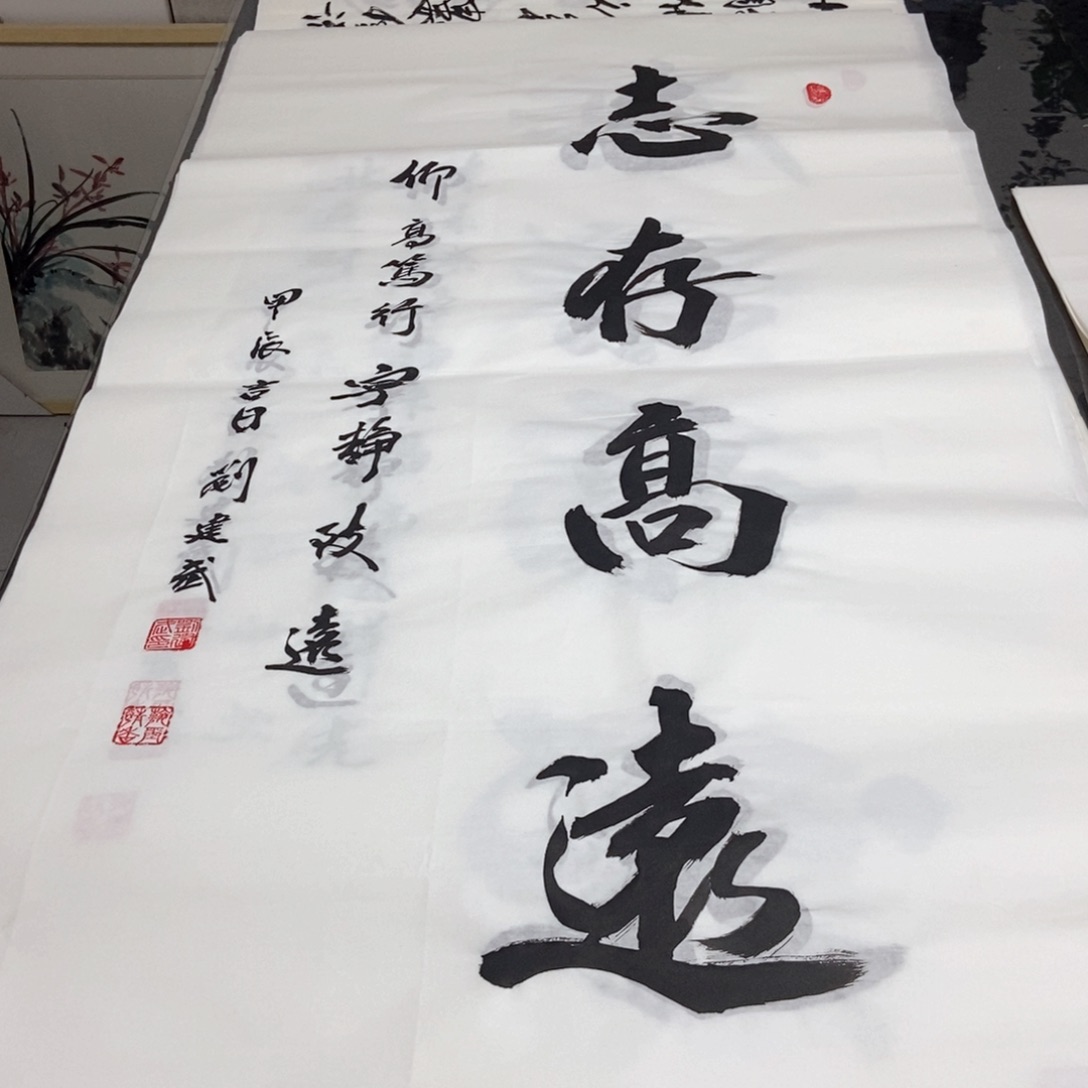 志存高遠
仰高篤行宁静致遠
甲辰吉日劉建武